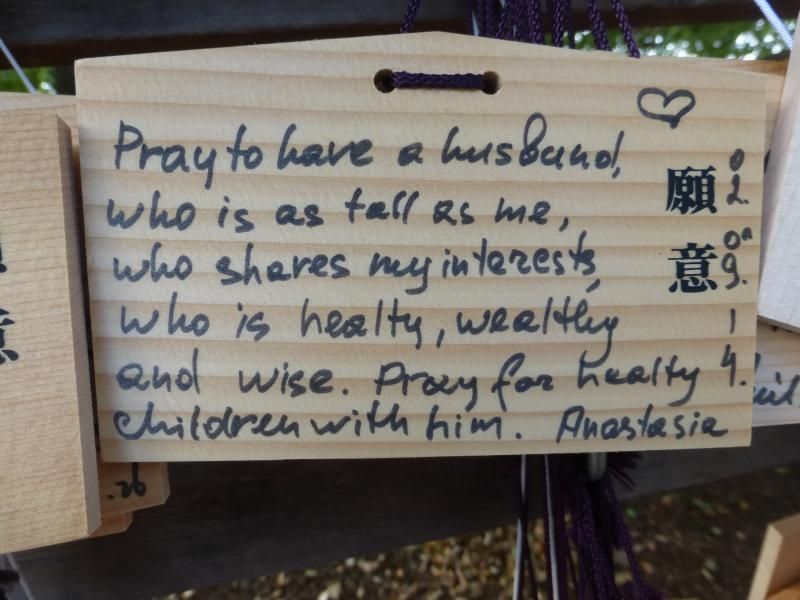 Pray to have a husband,
who is as tall as me,
who shares my interests,
who is healty, wealthy
and wise. Pray for healty
children with him. Anastasia
願意
02.09.14.
意
.26